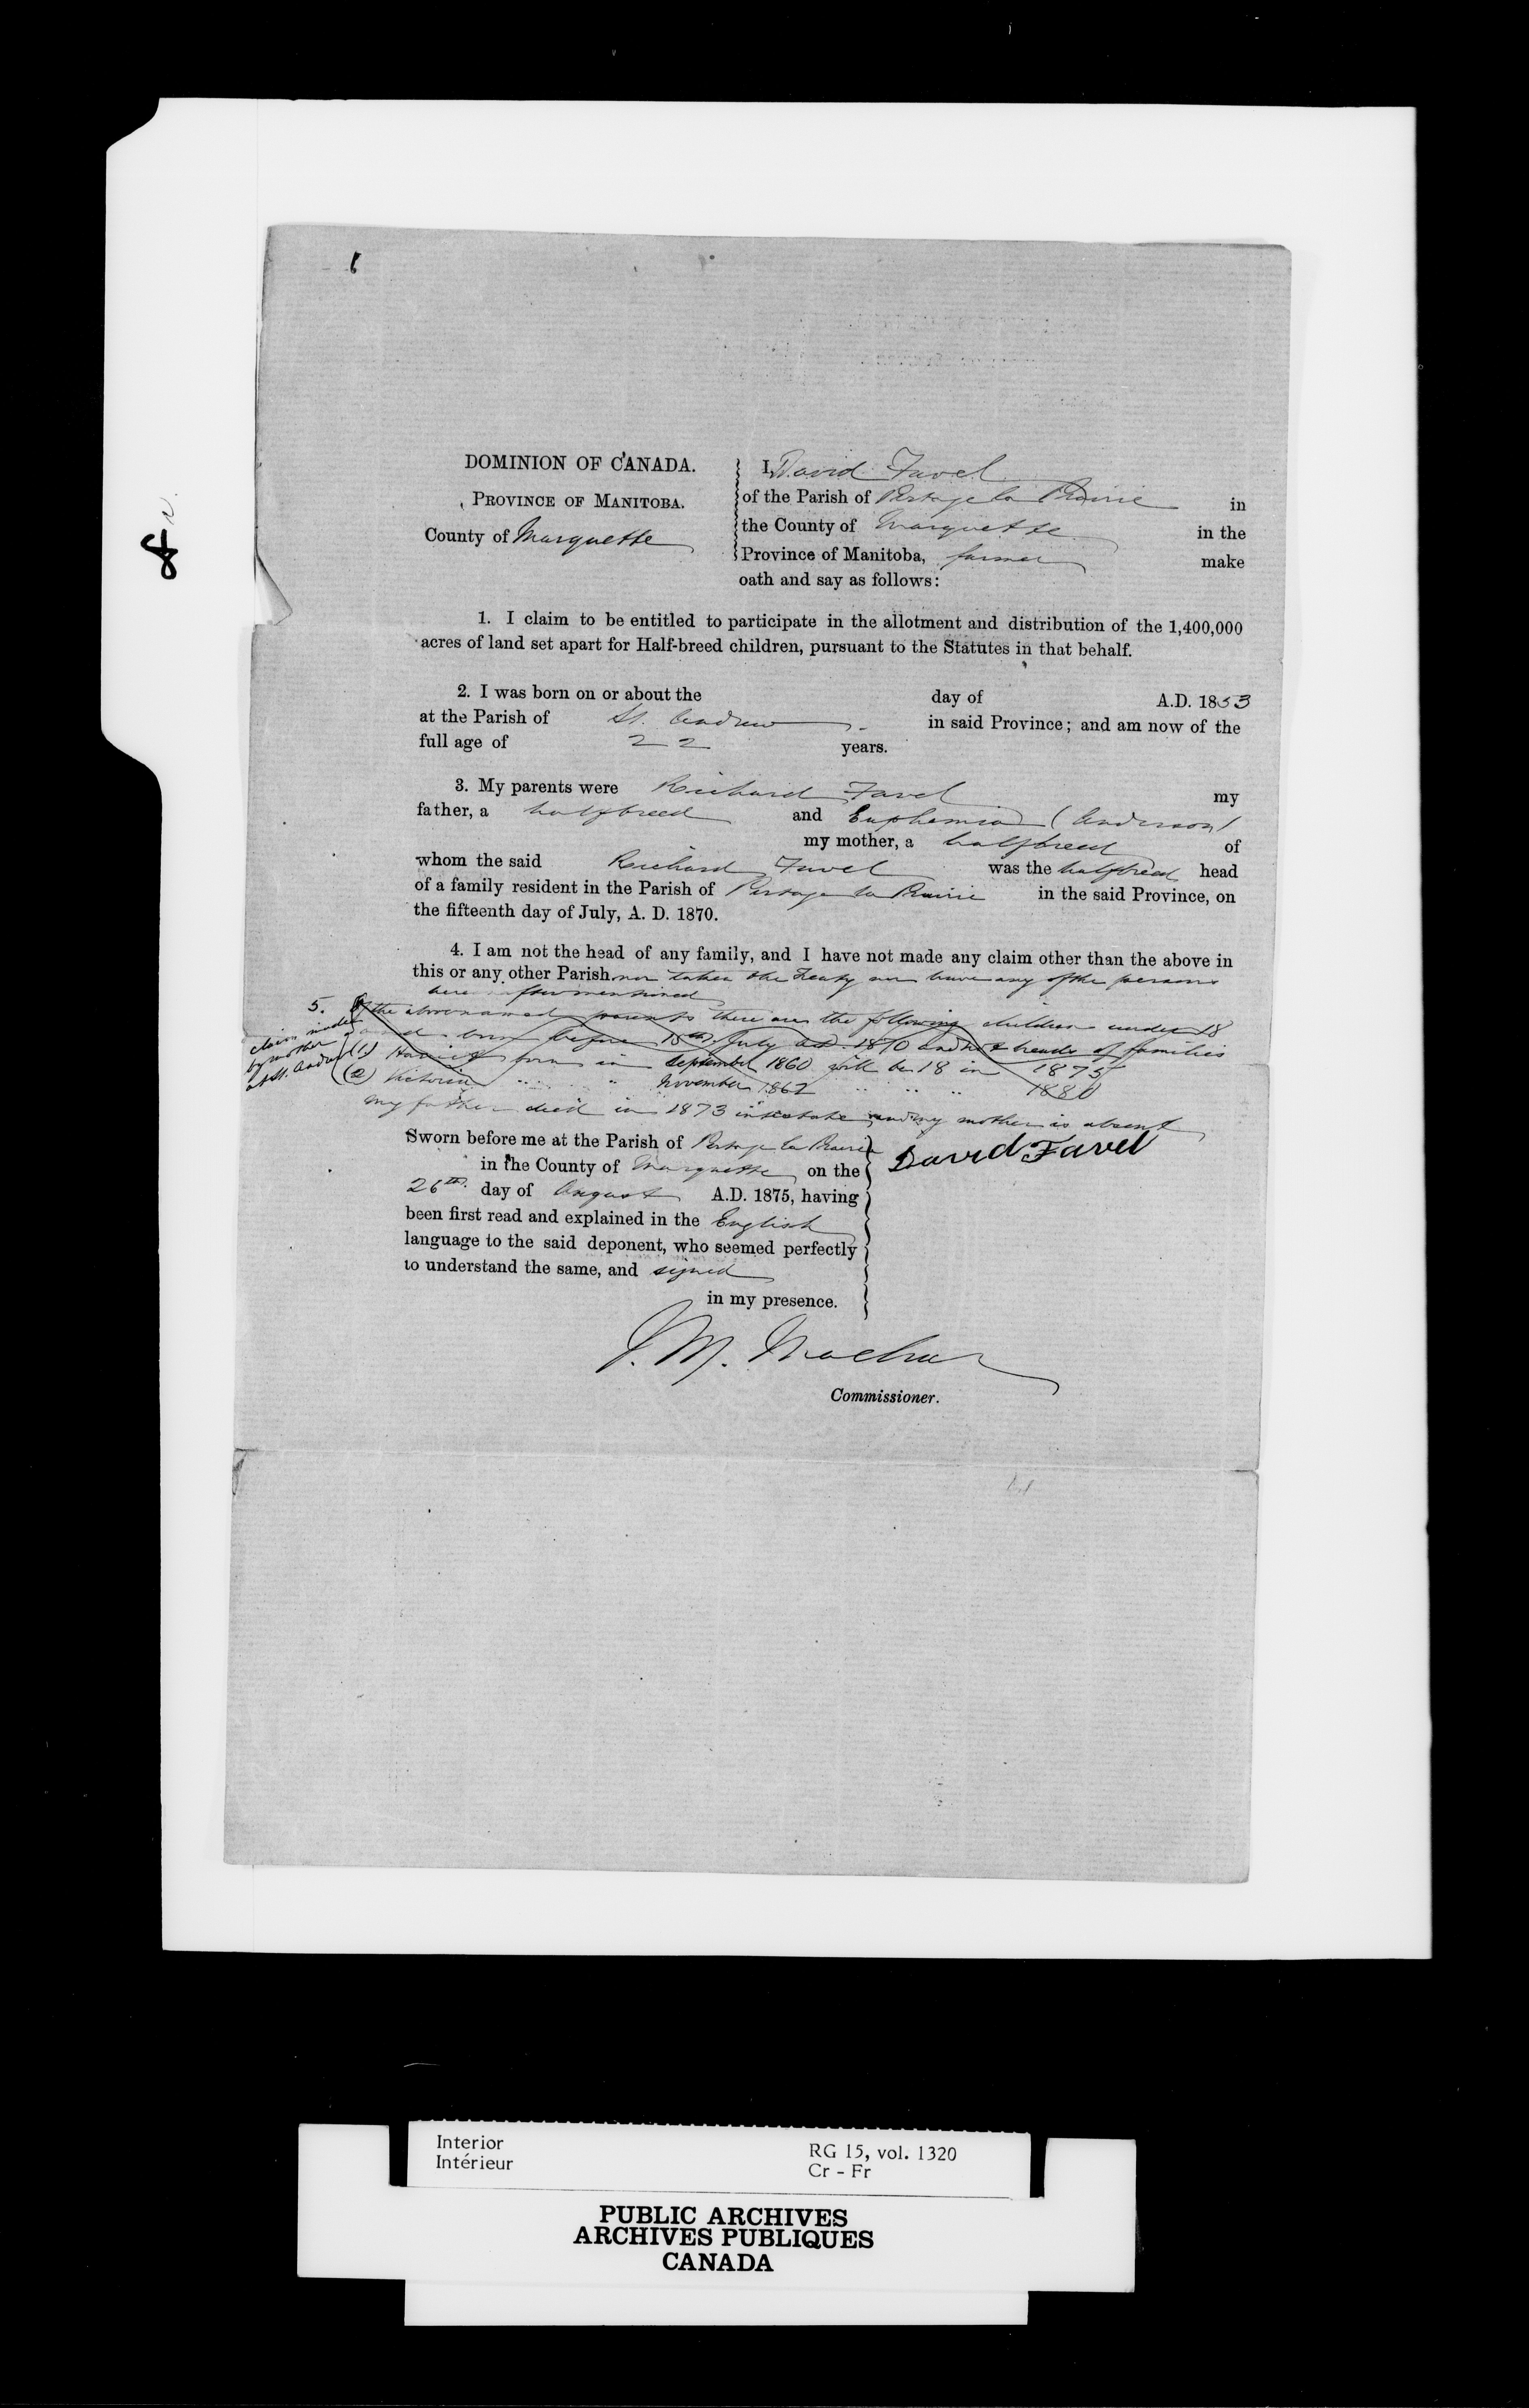 DOMINION OF CANADA.
PROVINCE OF MANITOBA.
County of Marquette
I, David Favel
of the Parish of Portage la Prairie in
the County of Marquette in the
Province of Manitoba, farmer make
oath and say as follows:
1. I claim to be entitled to participate in the allotment and distribution of the 1,400,000
acres of land set apart for Half-breed children, pursuant to the Statutes in that behalf.
2. I was born on or about the day of A.D. 1853
at the Parish of St. Andrew in said Province; and am now of the
full age of 22 years.
3. My parents were Richard Favel my
father, a halfbreed and Euphemia (Anderson)
my mother, a halfbreed of
whom the said Richard Favel was the halfbreed head
of a family resident in the Parish of Portage la Prairie in the said Province, on
the fifteenth day of July, A. D. 1870.
4. I am not the head of any family, and I have not made any claim other than the above in
this or any other Parish nor taken the Treaty nor have any of the persons
hereinafter mentioned
5. Of the above named parents there are the following children under 18
and born before 15th July AD. 1870 and not heads of families
claim made
by mother
at St. Andrew
(1) born in September 1860 will be 18 in 1875
(2) Victoria " " November 1862 " " " 1880
my father died in 1873 intestate and my mother is absent
Sworn before me at the Parish of Portage la Prairie
in the County of Marquette on the
26th day of August A.D. 1875, having
been first read and explained in the English
language to the said deponent, who seemed perfectly
to understand the same, and signed
in my presence.
David Favel
J. M. Machar
Commissioner.
Interior
Intérieur
RG 15, vol. 1320
Cr - Fr
PUBLIC ARCHIVES
ARCHIVES PUBLIQUES
CANADA